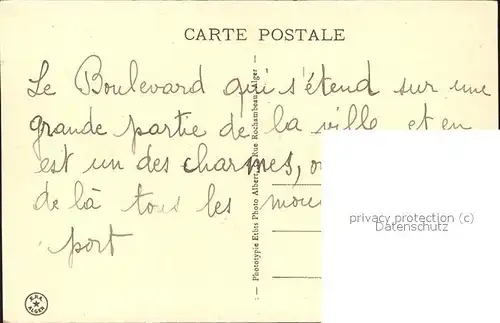 CARTE POSTALE
Le Boulevard qui s'étend sur une
grande partie de la ville et en
est un des charmes,
de là tous les
port
Phototypie Etbts Photo Albert, Rue Rochambeau, Alger
privacy protection (c)
Datenschutz
ALGER